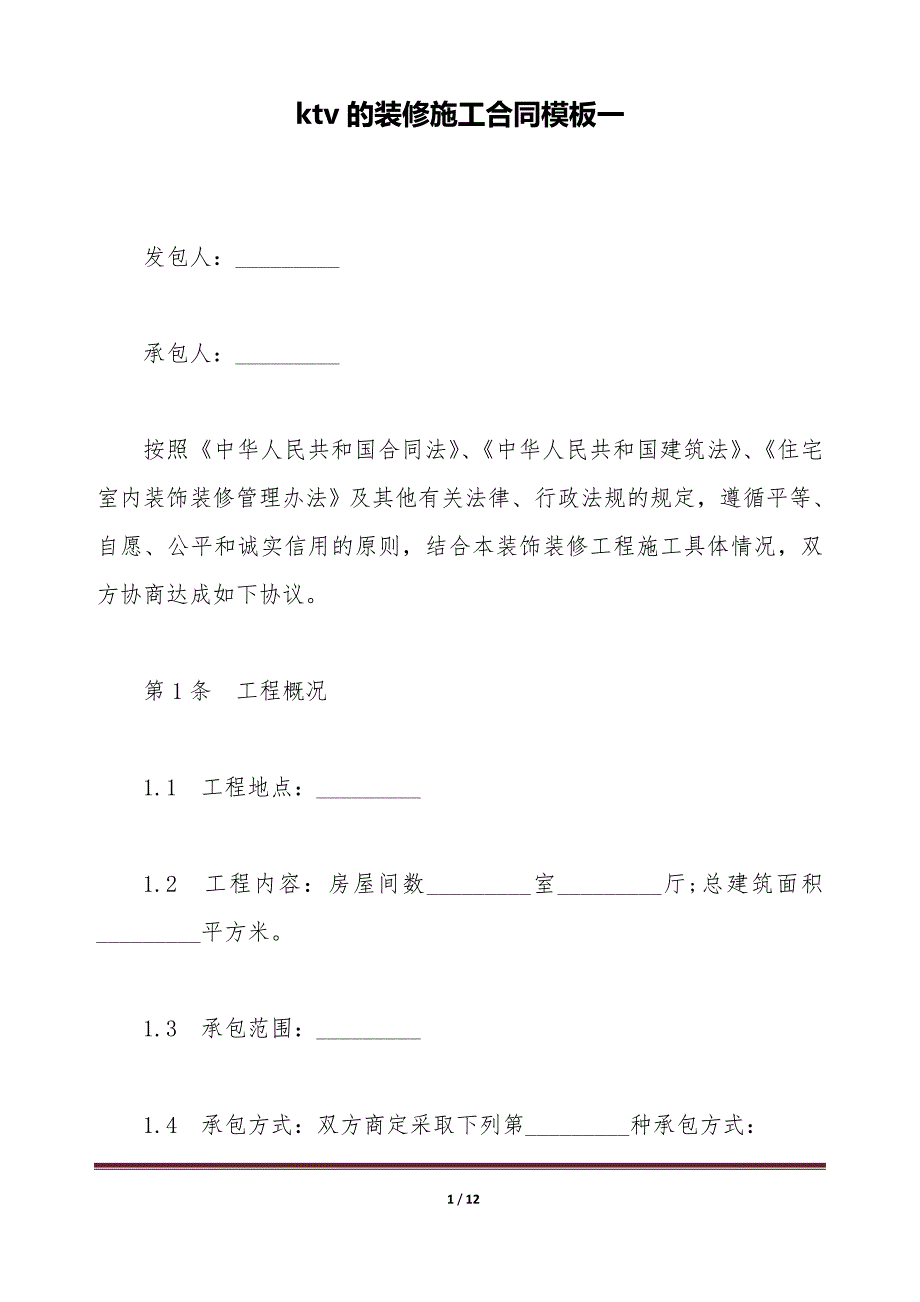 ktv 的装修施工合同模板一
发包人：_________
承包人：_________
按照《中华人民共和国合同法》、《中华人民共和国建筑法》、《住宅
室内装饰装修管理办法》及其他有关法律、行政法规的规定，遵循平等、
自愿、公平和诚实信用的原则，结合本装饰装修工程施工具体情况，双
方协商达成如下协议。
第 1 条　工程概况
1.1　工程地点：_________
1.2　工程内容：房屋间数_________室_________厅;总建筑面积
_________平方米。
1.3　承包范围：_________
1.4　承包方式：双方商定采取下列第_________种承包方式：
1 / 12